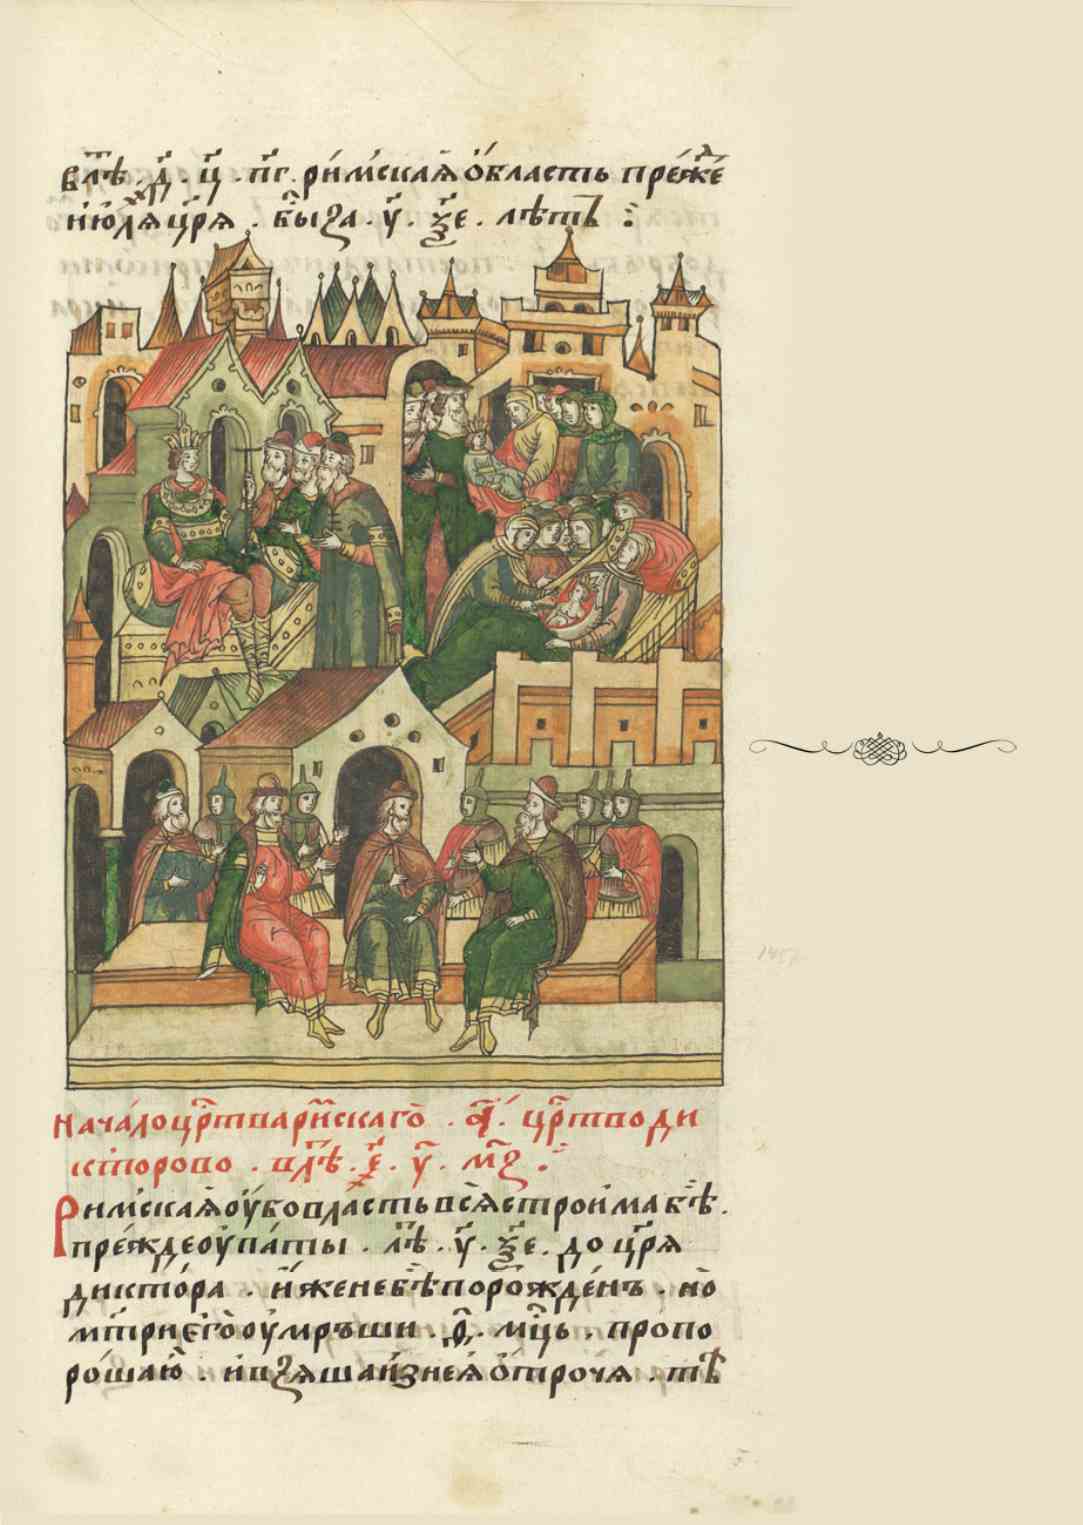 в лⷮѣ . д҃ . ц҃ . п҃г . ри́мскаѧ ѻ҆бласть пре́жⷣе
и҆ю́лѧ црⷭ҇ѧ . бы́ за . у҃ . ѯ҃е . лѣтъ ⁘
нача́ло црⷭ҇тва ри́мскаго . а҃ . црⷭ҇тво ди
кторово . в лⷮѣ . е҃ . у҃ . м҃з ⁘
Ри́мскаѧ ᲂу҆бо вла́сть всѧ̀ строи́ма бѣ̀ .
пре́жде ᲂу҆па́ты . лⷮѣ . у҃ . ѯ҃е . до црⷭ҇ѧ
дикто́ра . и҆же не бѣ̀ порожде́нъ . но̀
мт҃ри є҆го̀ ᲂу҆мръши . ѳ҃ . мцⷭ҇ь . пропо
ро́шаю̀ . и҆ взѧша и҆з неѧ̀ ѻ҆троча̀ . тѣⷨ